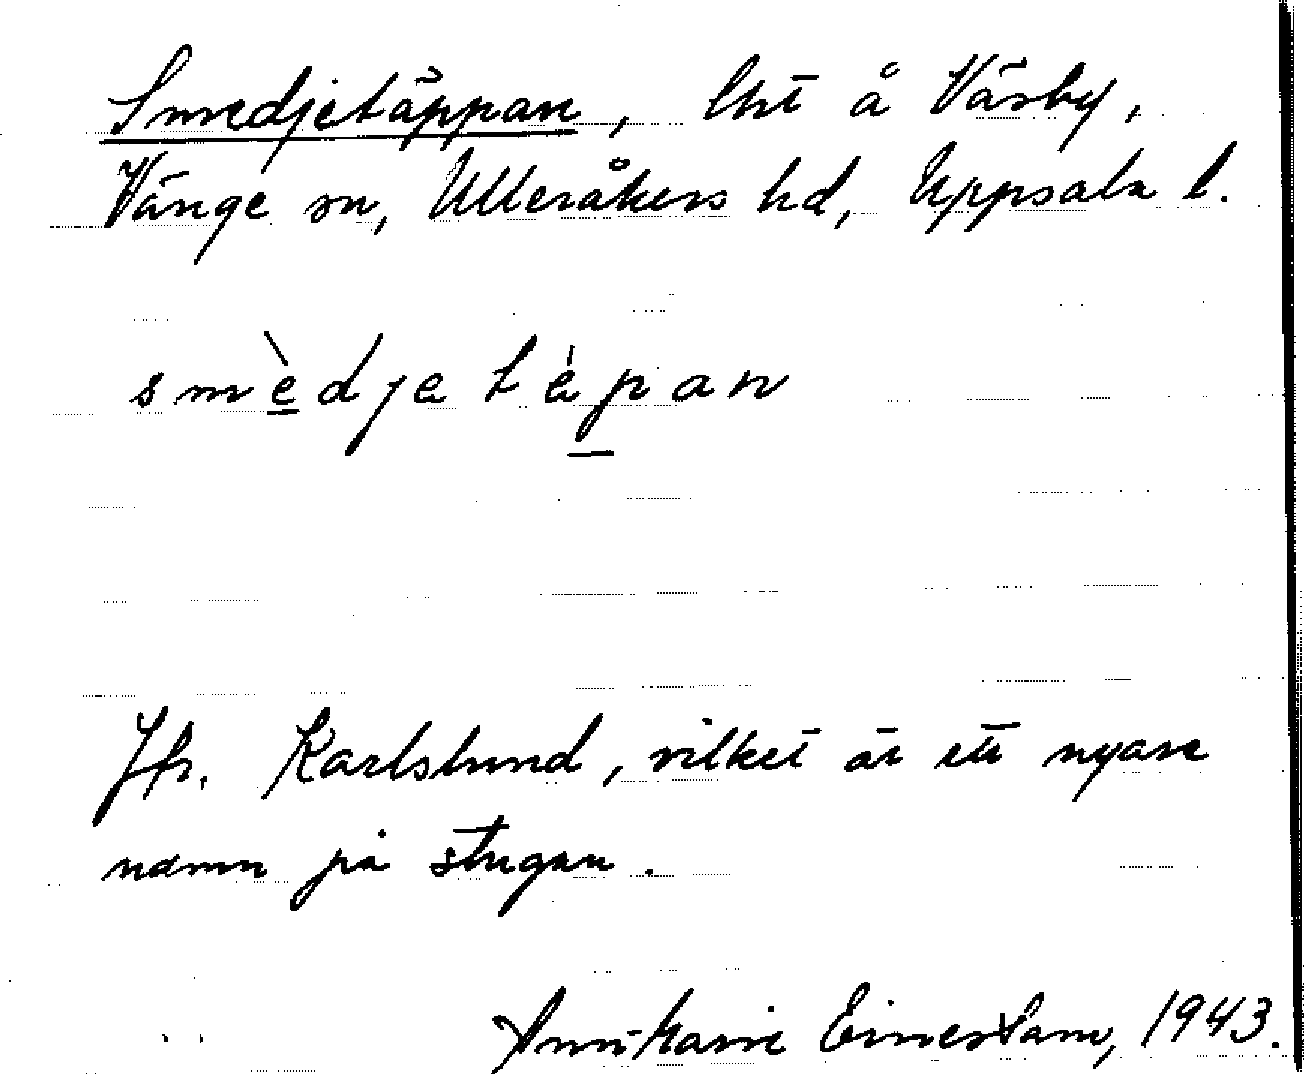 Smedjetäppan, lht å Väsby,
Vänge sn, Ulleråkers hd, Uppsala l.
smèdje tépan
Jfr. Karlslund, vilket är ett nyare
namn på stugan.
Ann-Marie Einerstam, 1943.